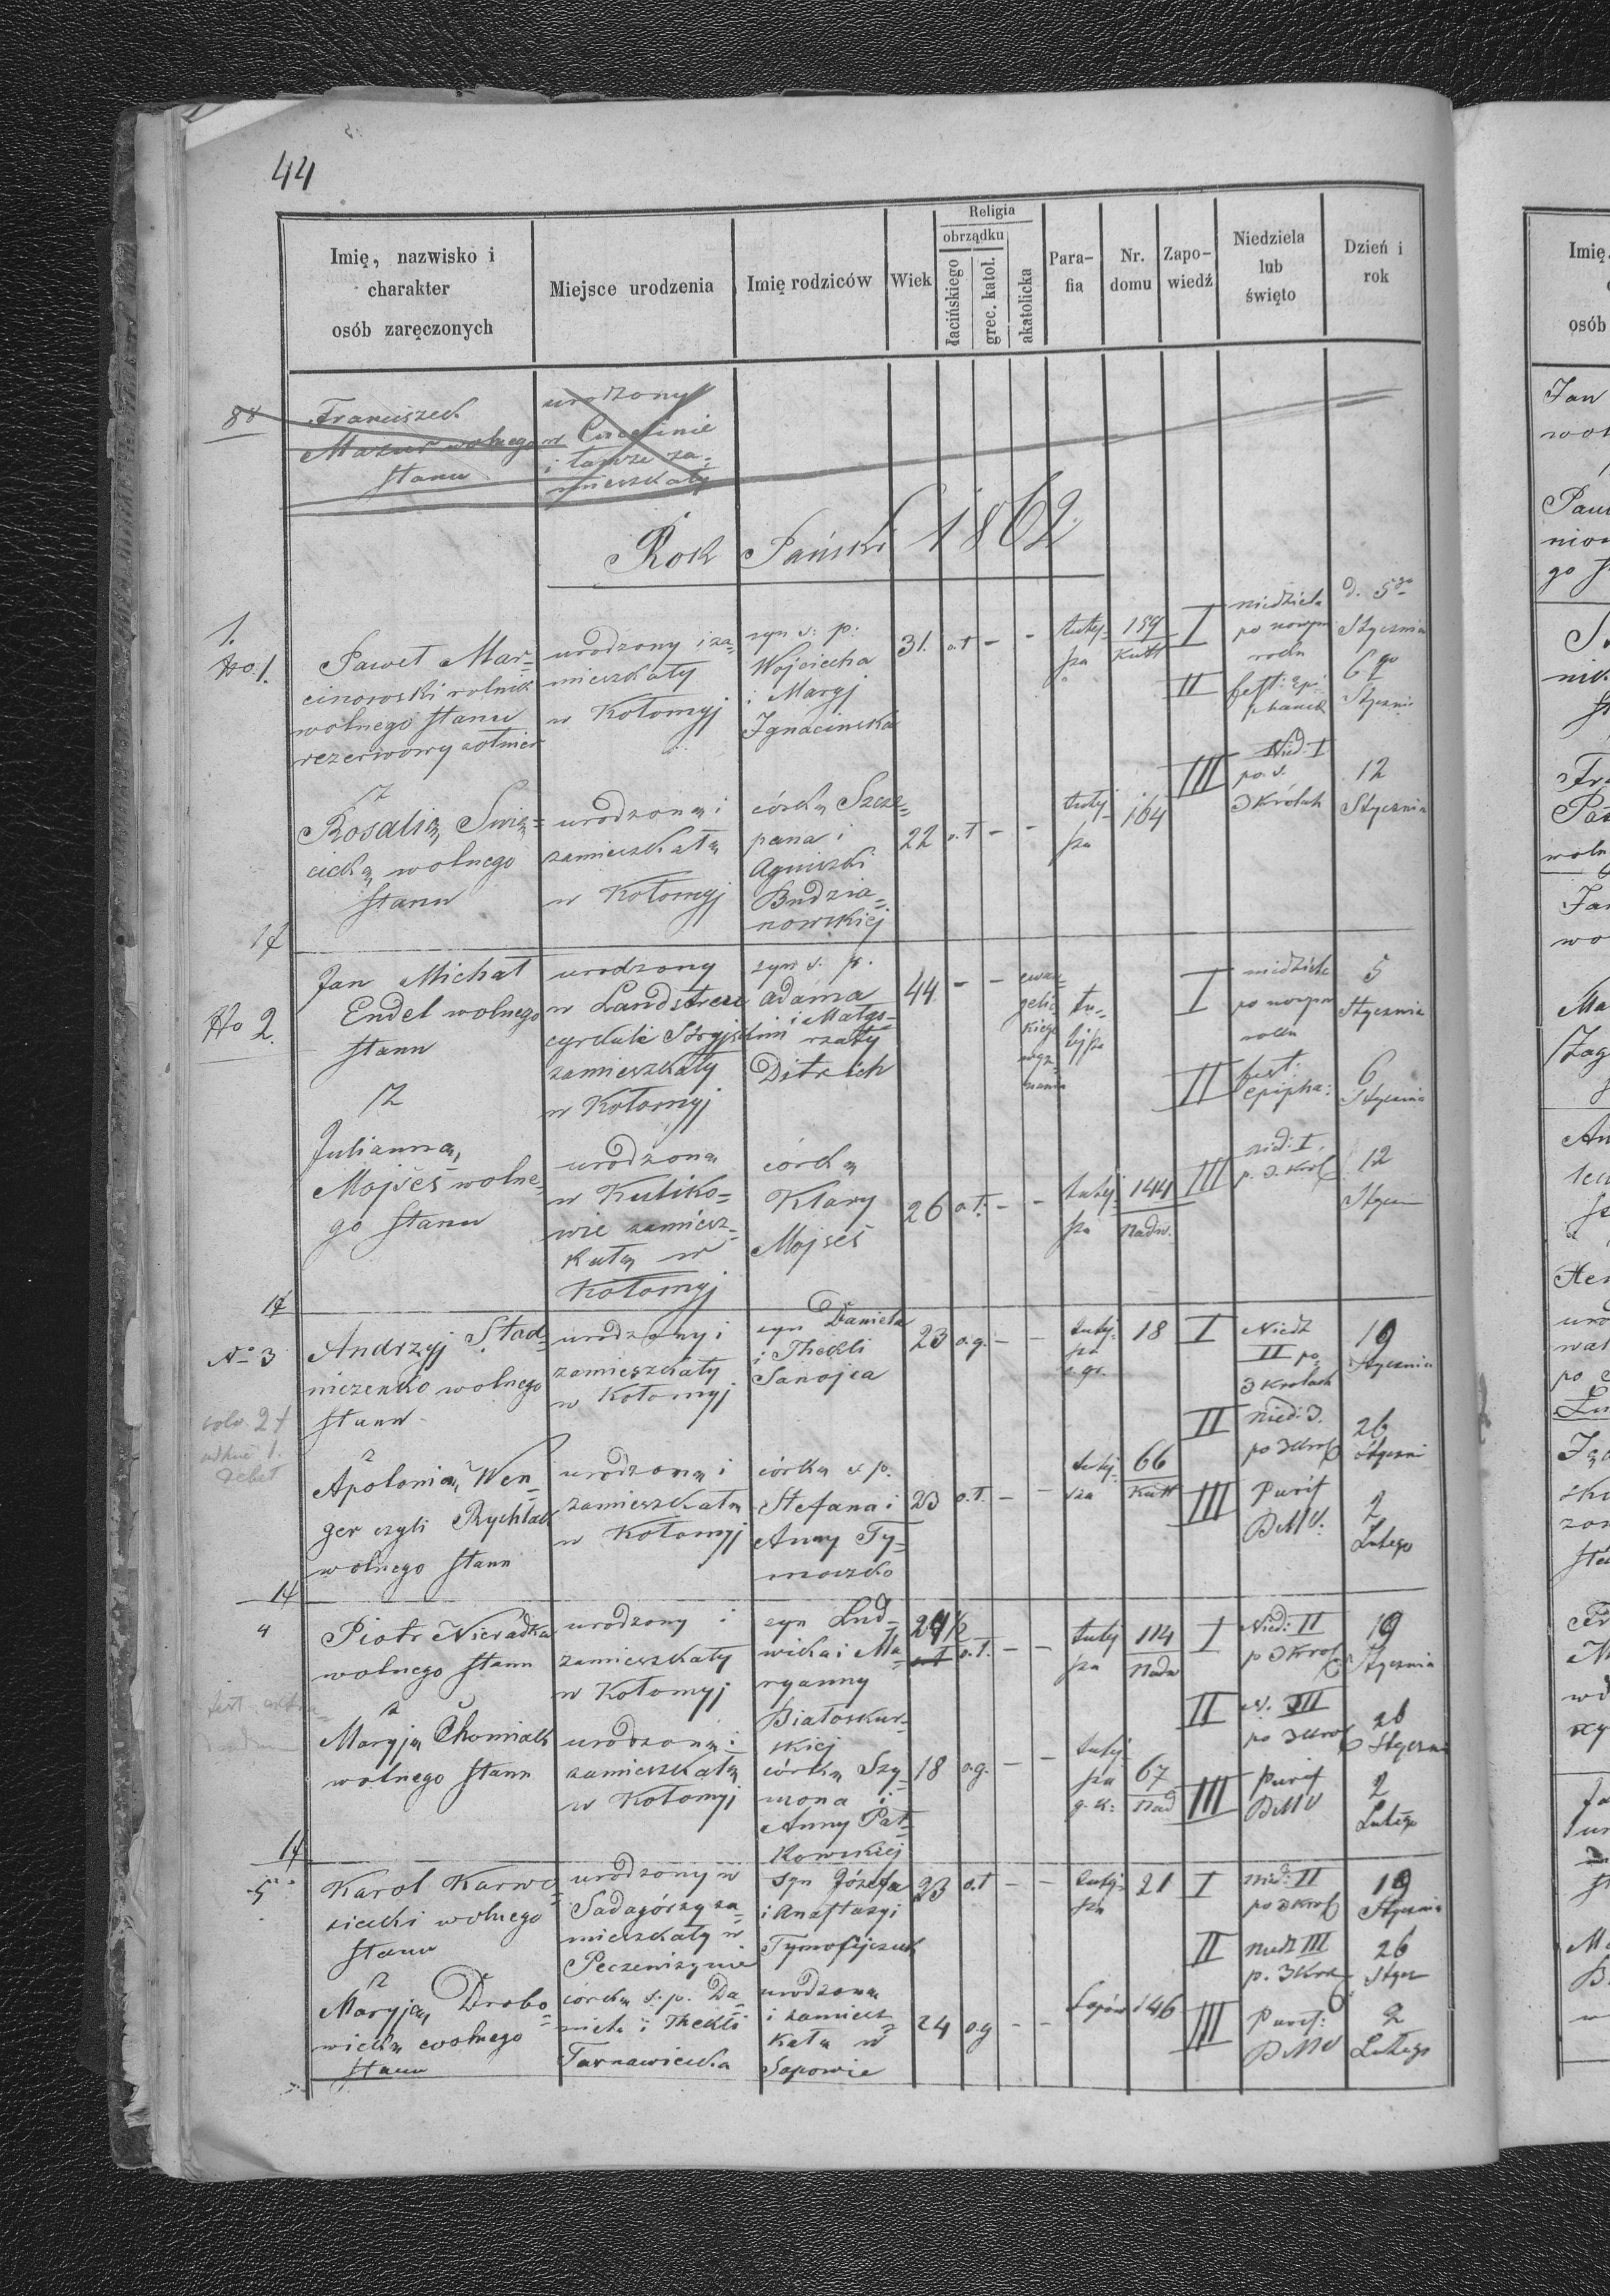 44
Imię, nazwisko i
charakter
osób zaręczonych
Miejsce urodzenia
Imię rodziców
Wiek
Religia
obrządku
łacińskiego
grec. katol.
akatolicka
Para-
fia
Nr.
domu
Zapo-
wiedź
Niedziela
lub
święto
Dzień i
rok
Franciszek
Mazur wolnego
stanu
urodzony
w
i
mieszkały
Rok Pański 1862
1.
No. 1.
Paweł Mar-
cinowski rolnik
wolnego stanu
rezerwowy żołnierz
urodzony i za=
mieszkały
w Kołomyj
syn ś: p:
Wojciecha
i Maryj
Ignacinska
31. o.ł - -
tutej-
sza
159
Kutt
I
niedziela
po nowym
roku
d. 5go
Stycznia
II
fest: epi
phaniae
6go
Styczni
III
Nied. I
po ś.
3 Królach
12
Stycznia
z
Rosalią Swię=
cicką wolnego
stanu
urodzoną i
zamieszkałą
w Kołomyj
córką Szcze=
pana i
Agnieszki
Budzia=
nowskiej
22 o.ł - -
tutej
sza
164
No 2.
Jan Michał
Endel wolnego
stanu
urodzony
w Landstreu
cyrkule Stryjskim
zamieszkały
w Kołomyj
syn ś. p.
adama
i Małgo=
rzaty
Ditrich
44 - -
ewan
gelic
kiego
wyz
nania
tu=
tejsza
I
niedziela
po nowym
roku
5
Stycznia
II
fest:
epipha:
6
Stycznia
III
nied: I.
p. 3. Król
12
Stycz
z
Julianną
Mojseś wolne=
go stanu
urodzoną
w Kuliko=
wie zamiesz=
kałą w
Kołomyj
córką
Klary
Mojseś
26 o.ł. - -
tutej
sza
144
Nadw.
No 3
Andrzyj Stad
niczenko wolnego
stanu
urodzony i
zamieszkały
w Kołomyj
syn Daniela
i Thekli
Sanojca
23 o.g. - -
tutej-
sza
o. gr.
18
I
Niedz
II po
3 Królach
19
Stycznia
II
nied: 3.
po 3 Król
26
Styczni
III
Purif
BMV.
2
Lutego
z
Apolonią Wen=
ger czyli Rychlak
wolnego stanu
urodzoną i
zamieszkałą
w Kołomyj
córką ś p.
Stefana i
Anny Ty=
moszko
23 o.ł. - -
tutej-
sza
66
Kutt
4
Piotr Nieradka
wolnego stanu
urodzony i
zamieszkały
w Kołomyj
syn Lud=
wika i Ma=
ryanny
Białoskur=
skiej
o.ł. - -
tutej
sza
114
Nadw
I
Nied: II
p 3 Król
19
Stycznia
II
III
po 3 Król
26
Styczni
III
Purif
BMV
2
Lutego
z
Maryją Chomiak
wolnego stanu
urodzoną i
zamieszkałą
w Kołomyj
córką Szy=
mona i
Anny Pał=
kowskiej
18 o.g. - -
tutej-
sza
g. k:
67
Nad
5
Karol Karwo
siecki wolnego
stanu
urodzony w
Sadagórzy za=
mieszkały w
Peczeniżynie
syn Józefa
i Anastazyi
Tymofijczuk
23 o.ł - -
tutej-
sza
21
I
nied: II
po 3 Król
19
Stycznia
II
niedz III
p. 3 Król
26
Stycz
III
Purif:
BMV
2
Lutego
z
Maryją Drobo=
wicką wolnego
stanu
córką ś. p. Da=
niela i Thekli
Tarnawiecka
urodzoną
i zamiesz
kałą w
Sopowie
24 o.g - -
Sopów
146